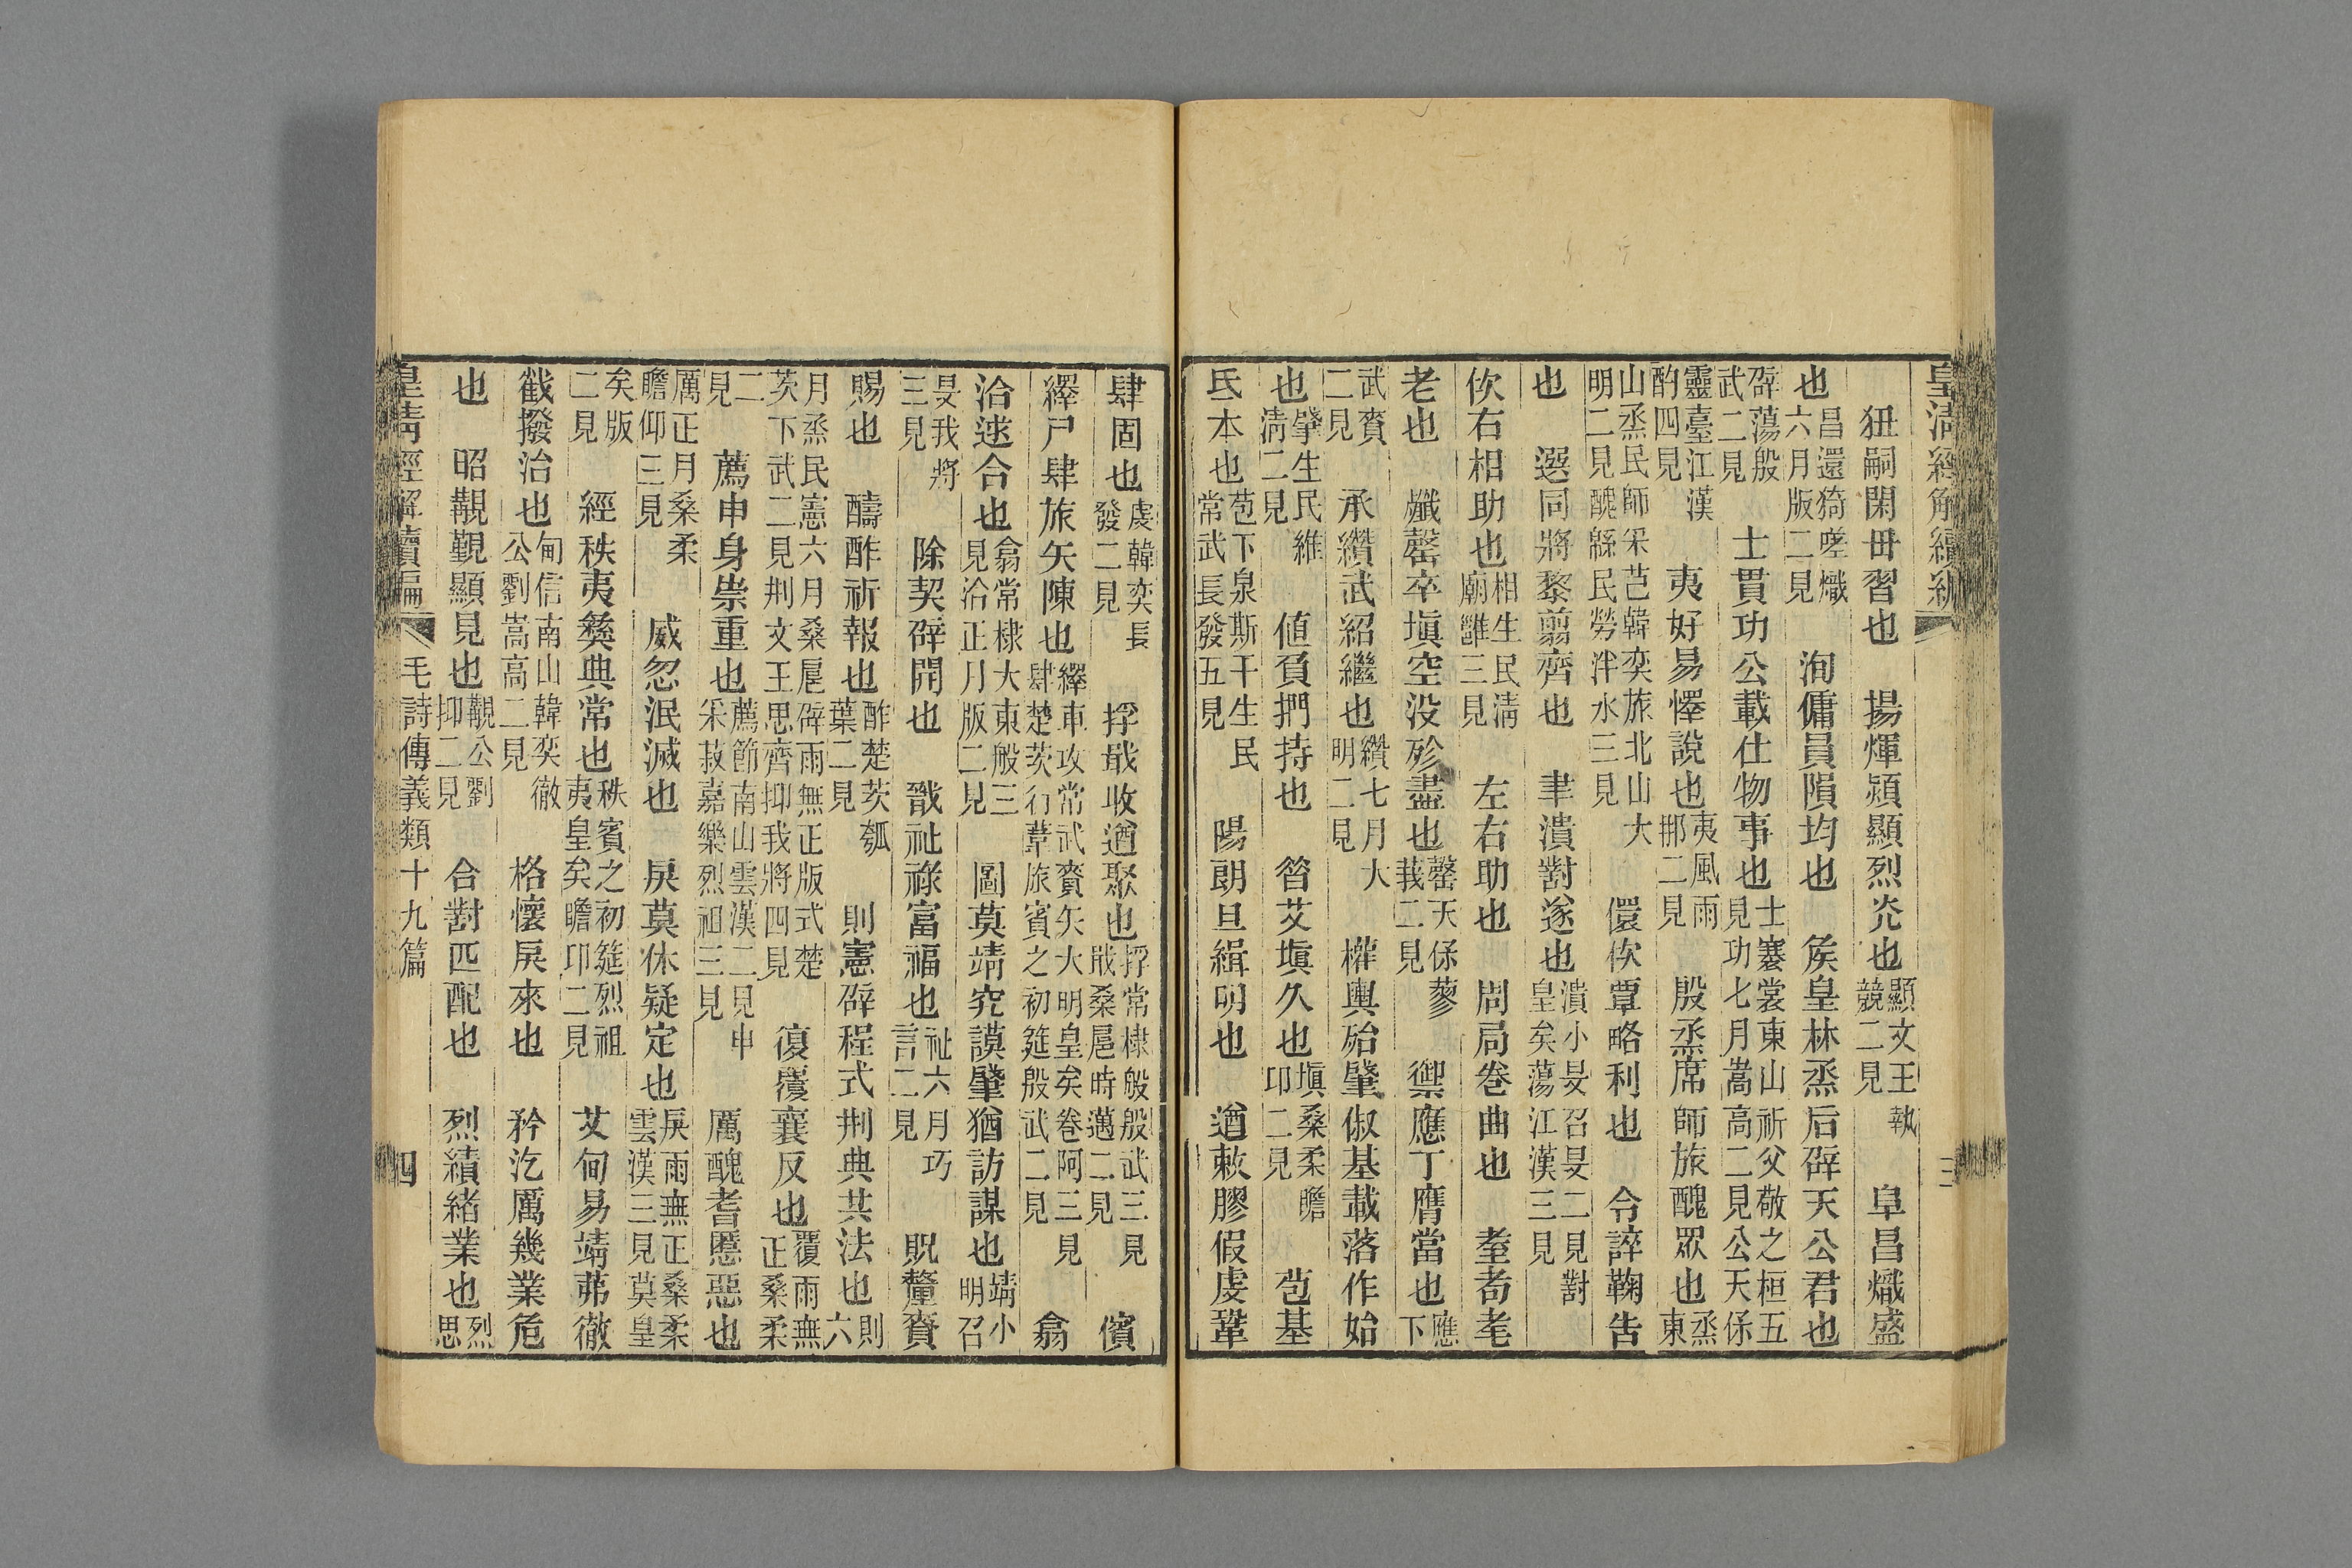 皇淸經解續編 三
狃嗣閑毌習也 揚煇熲顯烈光也 顯文王執競二見 阜昌熾盛
也 昌還猗嗟熾六月版二見 洵傭員隕均也 矦皇林烝后辟天公君也
辟蕩殷武二見 士貫功公載仕物事也 士褰裳東山祈父敬之桓五見功七月嵩高二見公天保
靈臺江漢酌四見 夷好易懌說也 夷風雨那二見 殷烝席師旅醜眾也 烝東
山烝民師采芑韓奕旅北山大明二見醜緜民勞泮水三見 儇佽覃略利也 令誶鞠告
也 選同將黎翦齊也 聿潰對遂也 潰小旻召旻二見對皇矣蕩江漢三見
佽右相助也 相生民淸廟雝三見 左右助也 局卷曲也 耋耇耄
老也 殲罄卒塡空没殄盡也 罄天保蓼莪二見 禦應丁膺當也 應下
武賚二見 承纘武紹繼也 纘七月大明二見 權輿殆肇俶基載落作始
也 肇生民維淸二見 値負捫持也 曶艾塡久也 塡桑柔瞻卬二見 苞基
氐本也 苞下泉斯干生民常武長發五見 陽朗旦緝明也 遒敕膠假虔鞏
肆固也 虔韓奕長發二見 捊戢收遒聚也 捊常棣般殷武三見戢桑扈時邁二見 儐
繹尸肆旅矢陳也 繹車攻常武賚矢大明皇矣卷阿三見肆楚茨行葦旅賓之初筵殷武二見 翕
洽逑合也 翕常棣大東般三見洽正月版二見 圖莫靖究謨肇猶訪謀也 靖小明召
旻我將三見 除契辟開也 戩祉祿富福也 祉六月巧言二見 貺釐賚
賜也 醻酢祈報也 酢楚茨瓠葉二見 則憲辟程式刑典共法也 則六
月烝民憲六月桑扈辟雨無正版式楚茨下武二見刑文王思齊抑我將四見 復覆襄反也 覆雨無正桑柔
二見 薦申身崇重也 薦節南山雲漢二見申采菽嘉樂烈祖三見 厲醜耆慝惡也
厲正月桑柔瞻仰三見 烕忽泯滅也 戾莫休疑定也 戾雨無正桑柔雲漢三見莫皇
矣版二見 經秩夷彝典常也 秩賓之初筵烈祖夷皇矣瞻卬二見 艾甸易靖茀徹
截撥治也 甸信南山韓奕徹公劉嵩高二見 格懷戾來也 矜汔厲幾業危
也 昭覯覲顯見也 覯公劉抑二見 合對匹配也 烈績緒業也 烈思
皇淸經解續編 毛詩傳義類十九篇 四